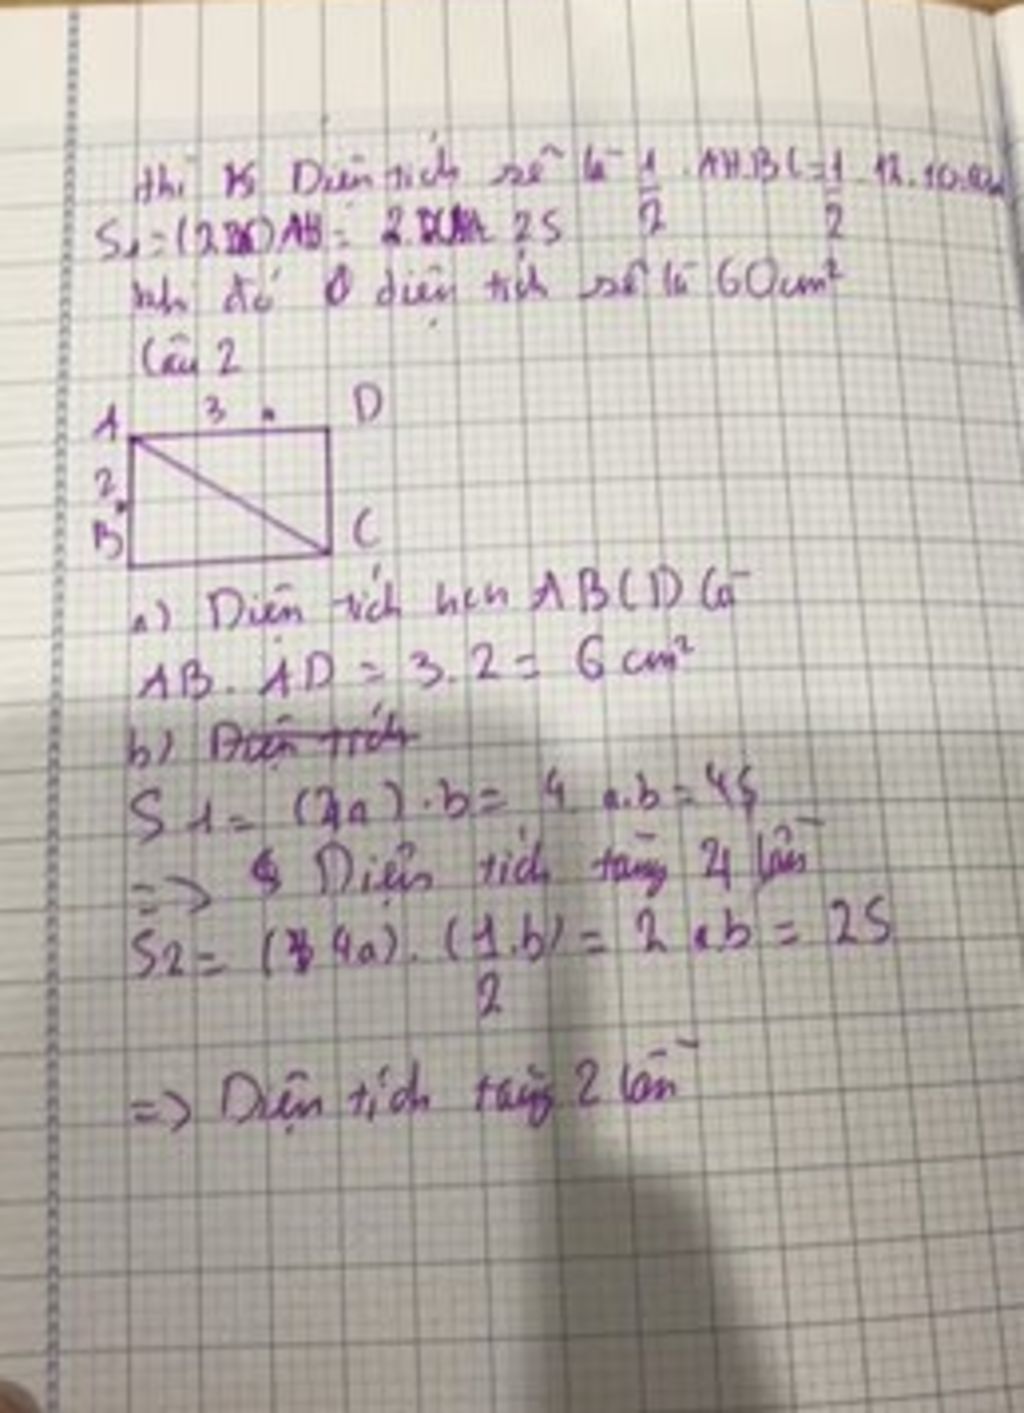 thì Diện tích sẽ là 1/2 . AH.BC = 1/2 12.10
S1=(2)AH= 2. 2S
đó diện tích sẽ là 60cm²
Câu 2
A 3 D
2
B C
a) Diện tích hcn ABCD là
AB. AD = 3. 2 = 6 cm²
b) Diện tích
S1= (4a).b= 4 a.b = 4S
=> Diện tích tăng 4 lần
S2= (4a). (1/2.b) = 2 ab = 2S
=> Diện tích tăng 2 lần